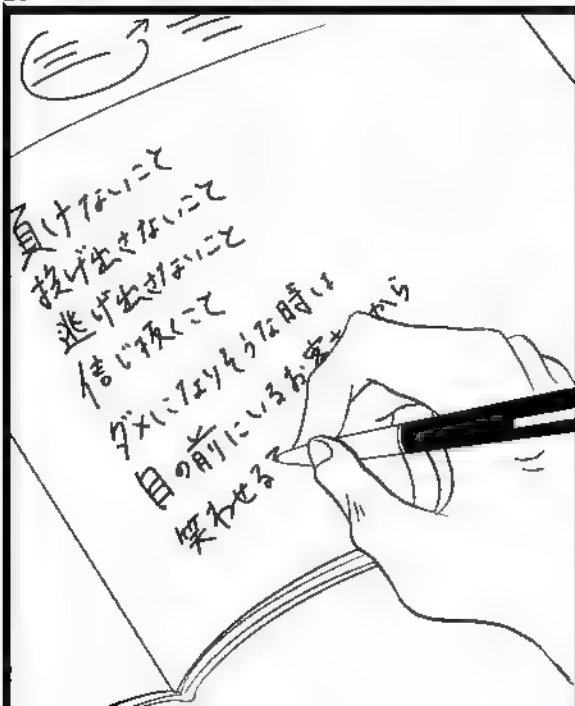 負けないこと
投げ出さないこと
逃げ出さないこと
信じ抜くこと
ダメになりそうな時は
目の前にいるお客さから
笑わせる